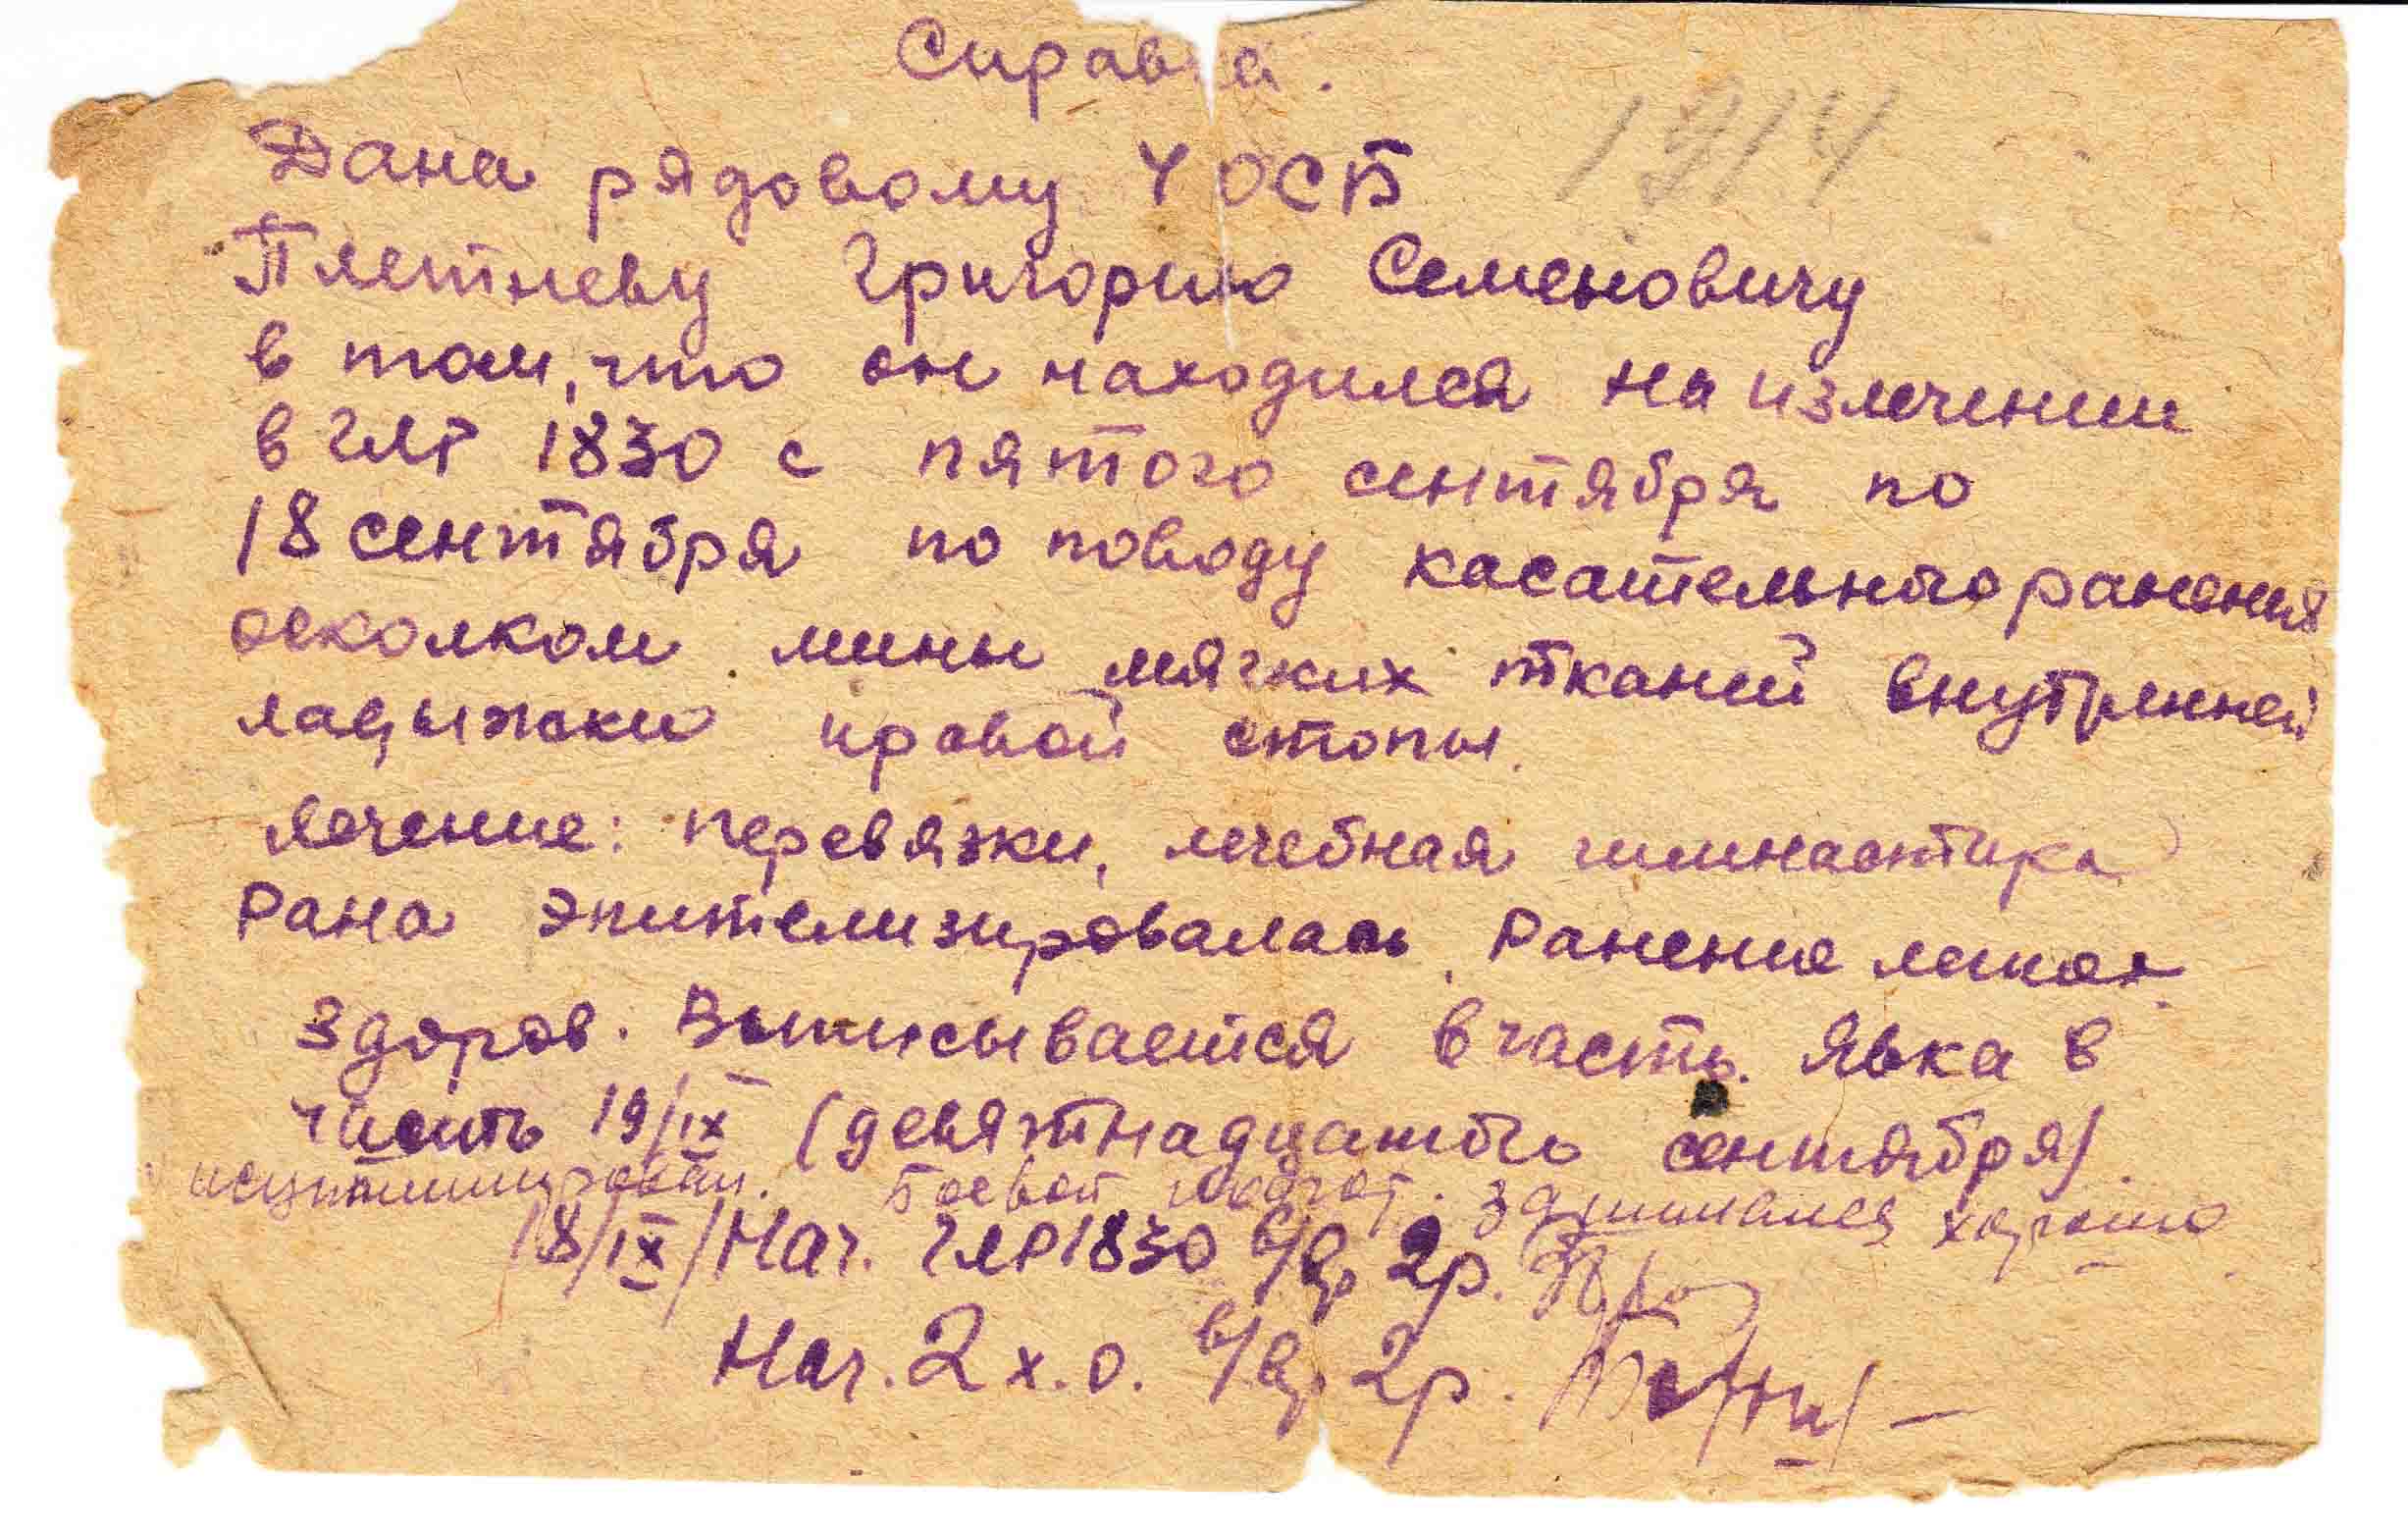 Справка.
1914
Дана рядовому 4 ОСБ
Плетневу Григорию Семеновичу
в том, что он находился на излечении
в ГЛР 1830 с пятого сентября по
18 сентября по поводу касательного ранения
осколком мины мягких тканей внутренней
ладыжки правой стопы.
Лечение: перевязки, лечебная гимнастика
Рана эпителизировалась. Ранение легкое.
Здоров. Выписывается в часть. Явка в
часть 19/IX (девятнадцатого сентября).
Боевой подгот. занимался хорошо
18/IX/Нач. ГЛР 1830 в/вр 2р.
Нач. 2 х.о. в/вр 2р.